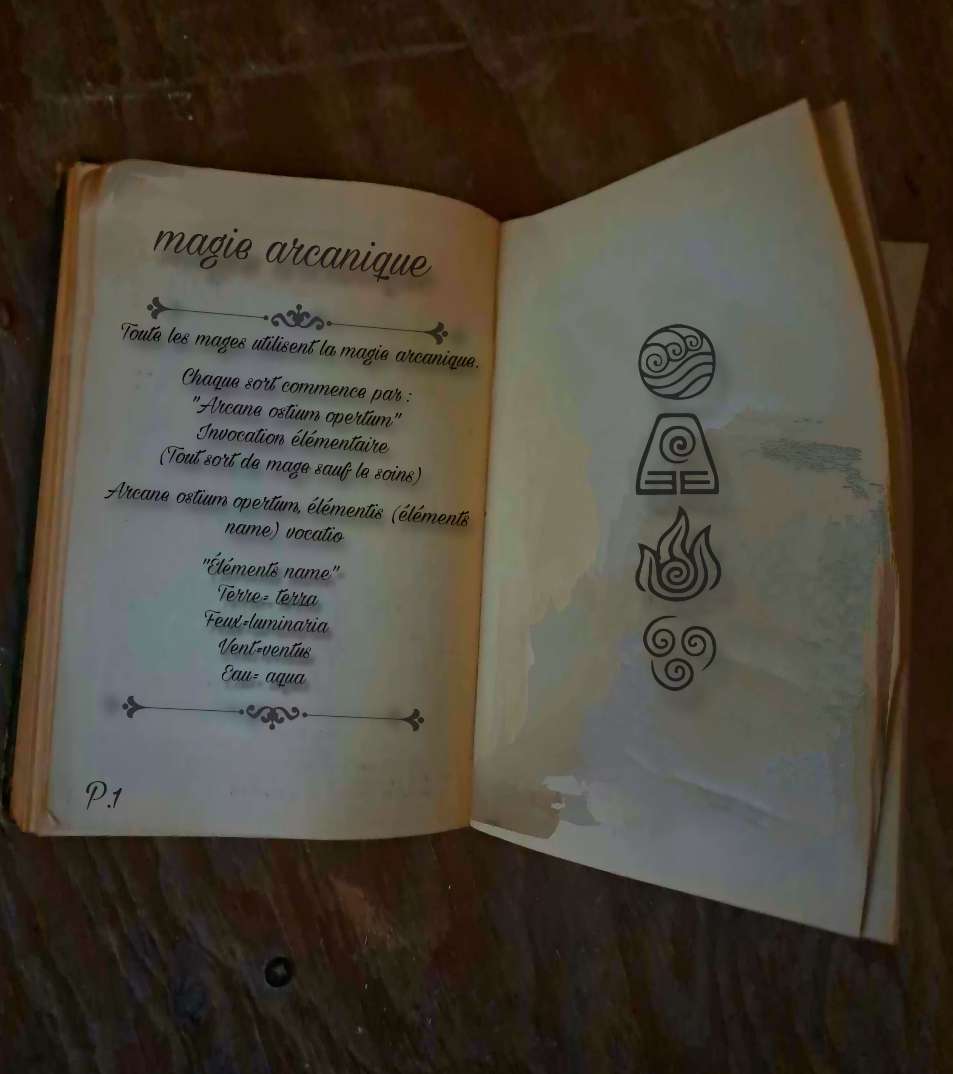 magie arcanique
Toute les mages utilisent la magie arcanique.
Chaque sort commence par :
"Arcane ostium opertum"
Invocation élémentaire
(Tout sort de mage sauf le soins)
Arcane ostium opertum, élémentis (éléments
name) vocatio
"Éléments name"
Terre= terra
Feux=luminaria
Vent=ventus
Eau= aqua
P.1